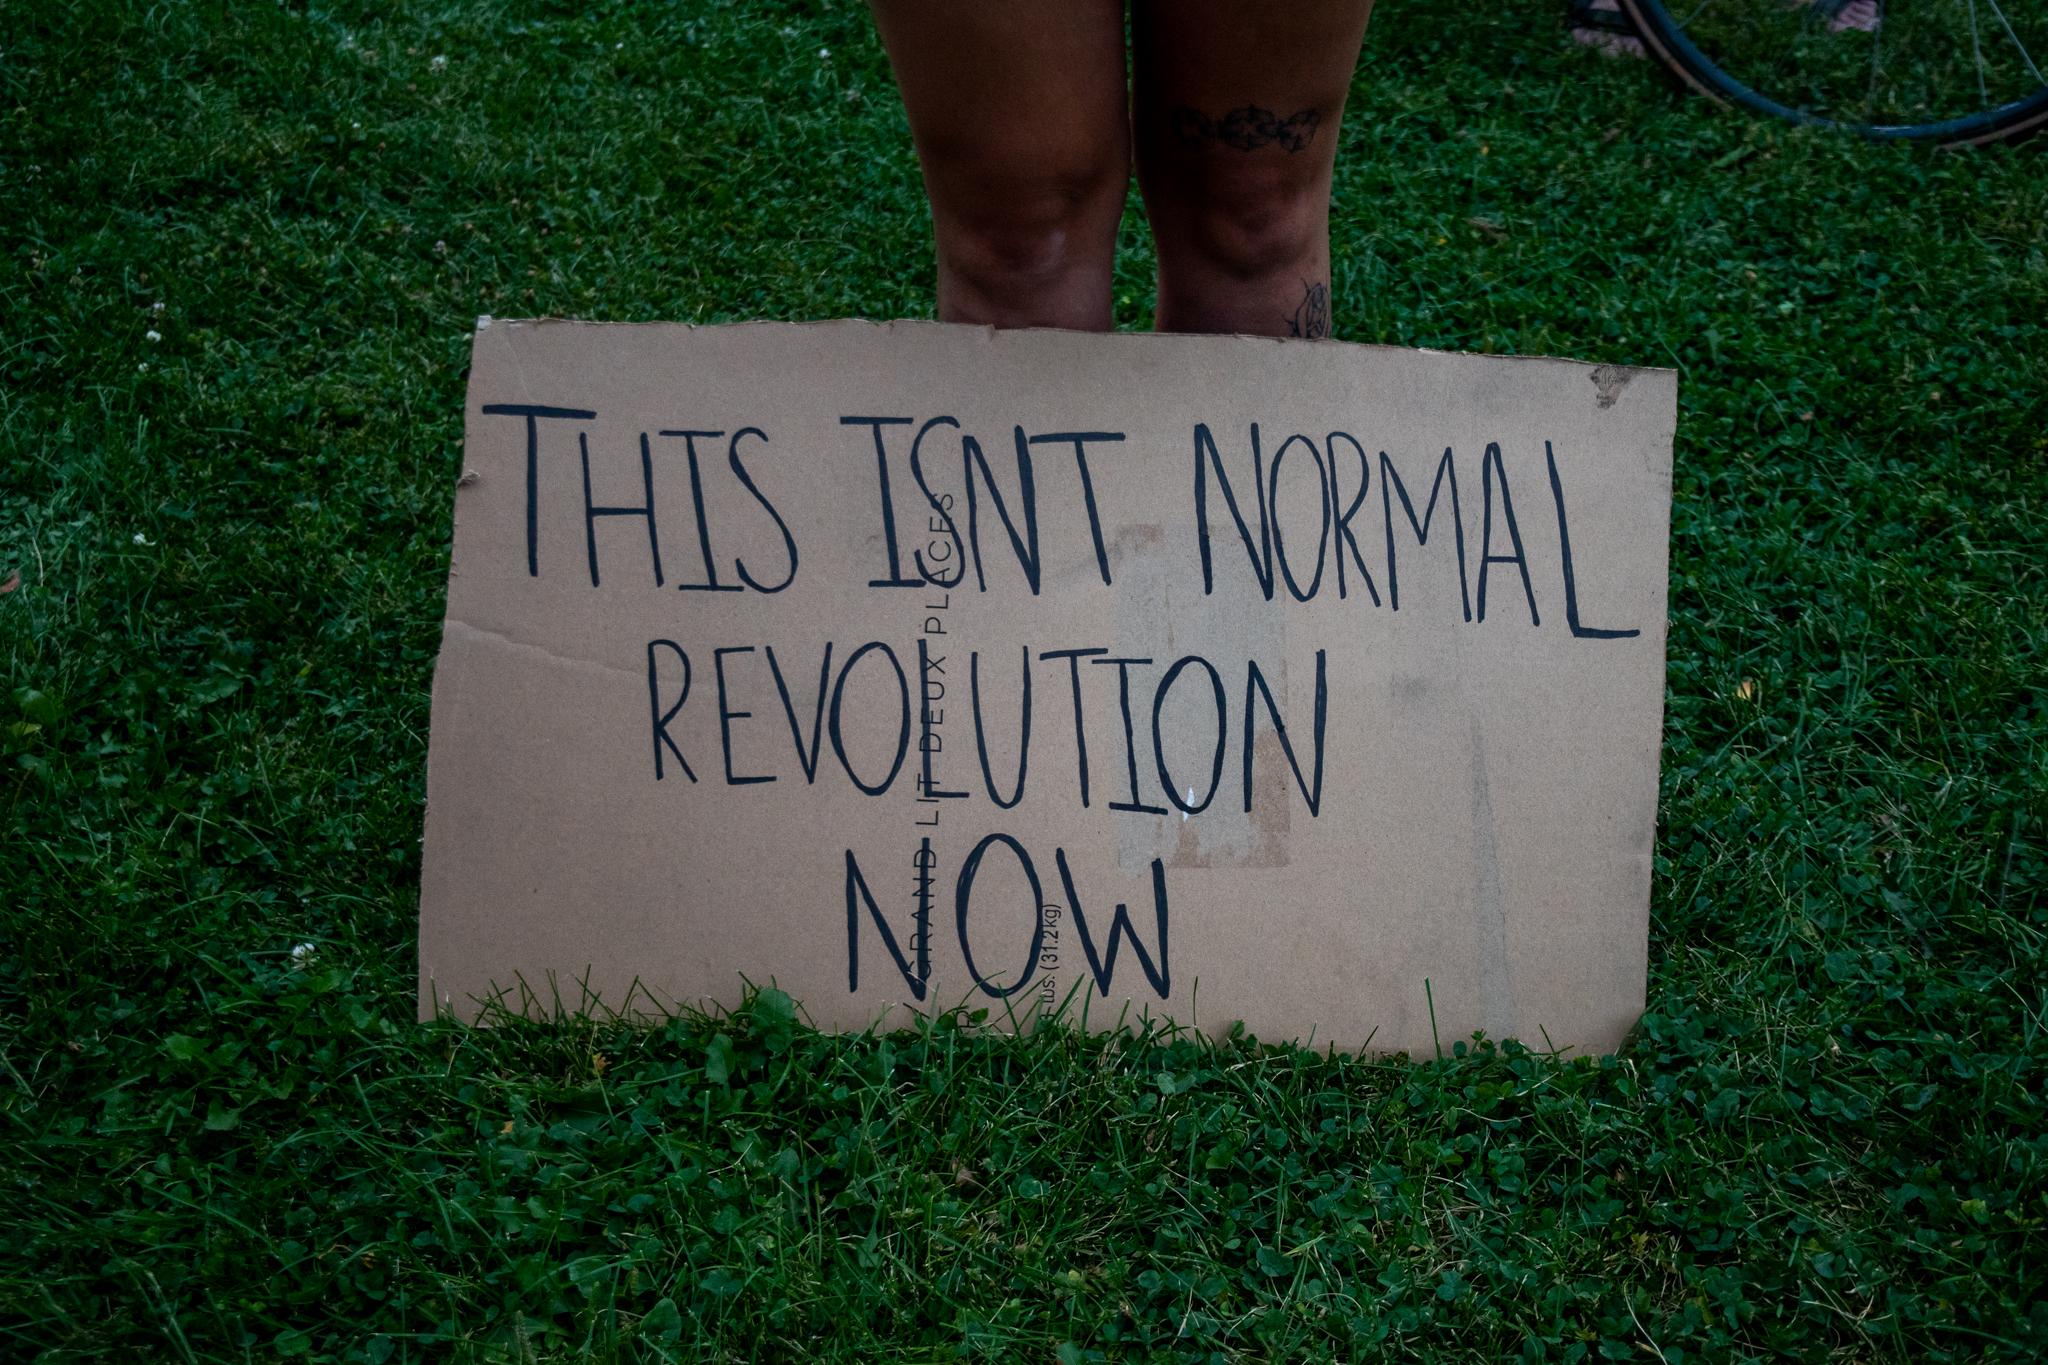 THIS ISNT NORMAL
REVOLUTION
NOW
GRAND LIT DEUX PLACES
lbs. (31.2kg)